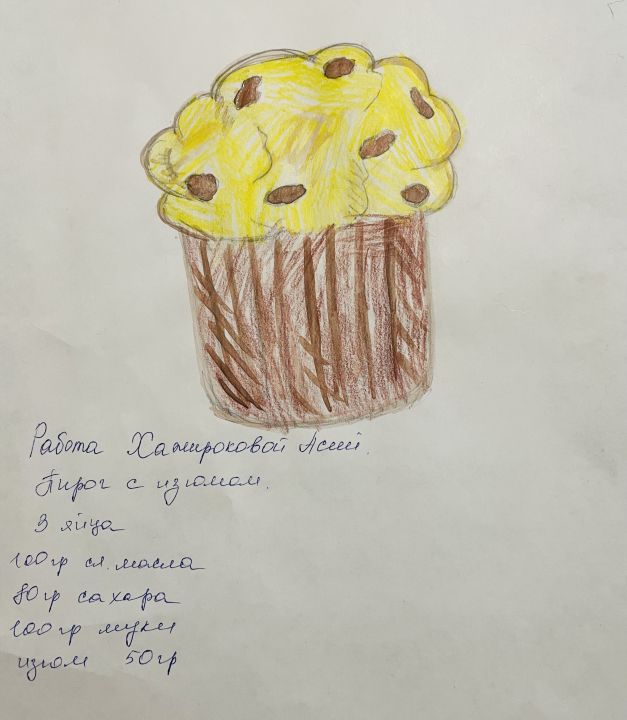 Работа Хажироковой Асии.
Пирог с изюмом.
3 яйца
100 гр сл. масла
80 гр сахара
100 гр муки
изюм 50 гр